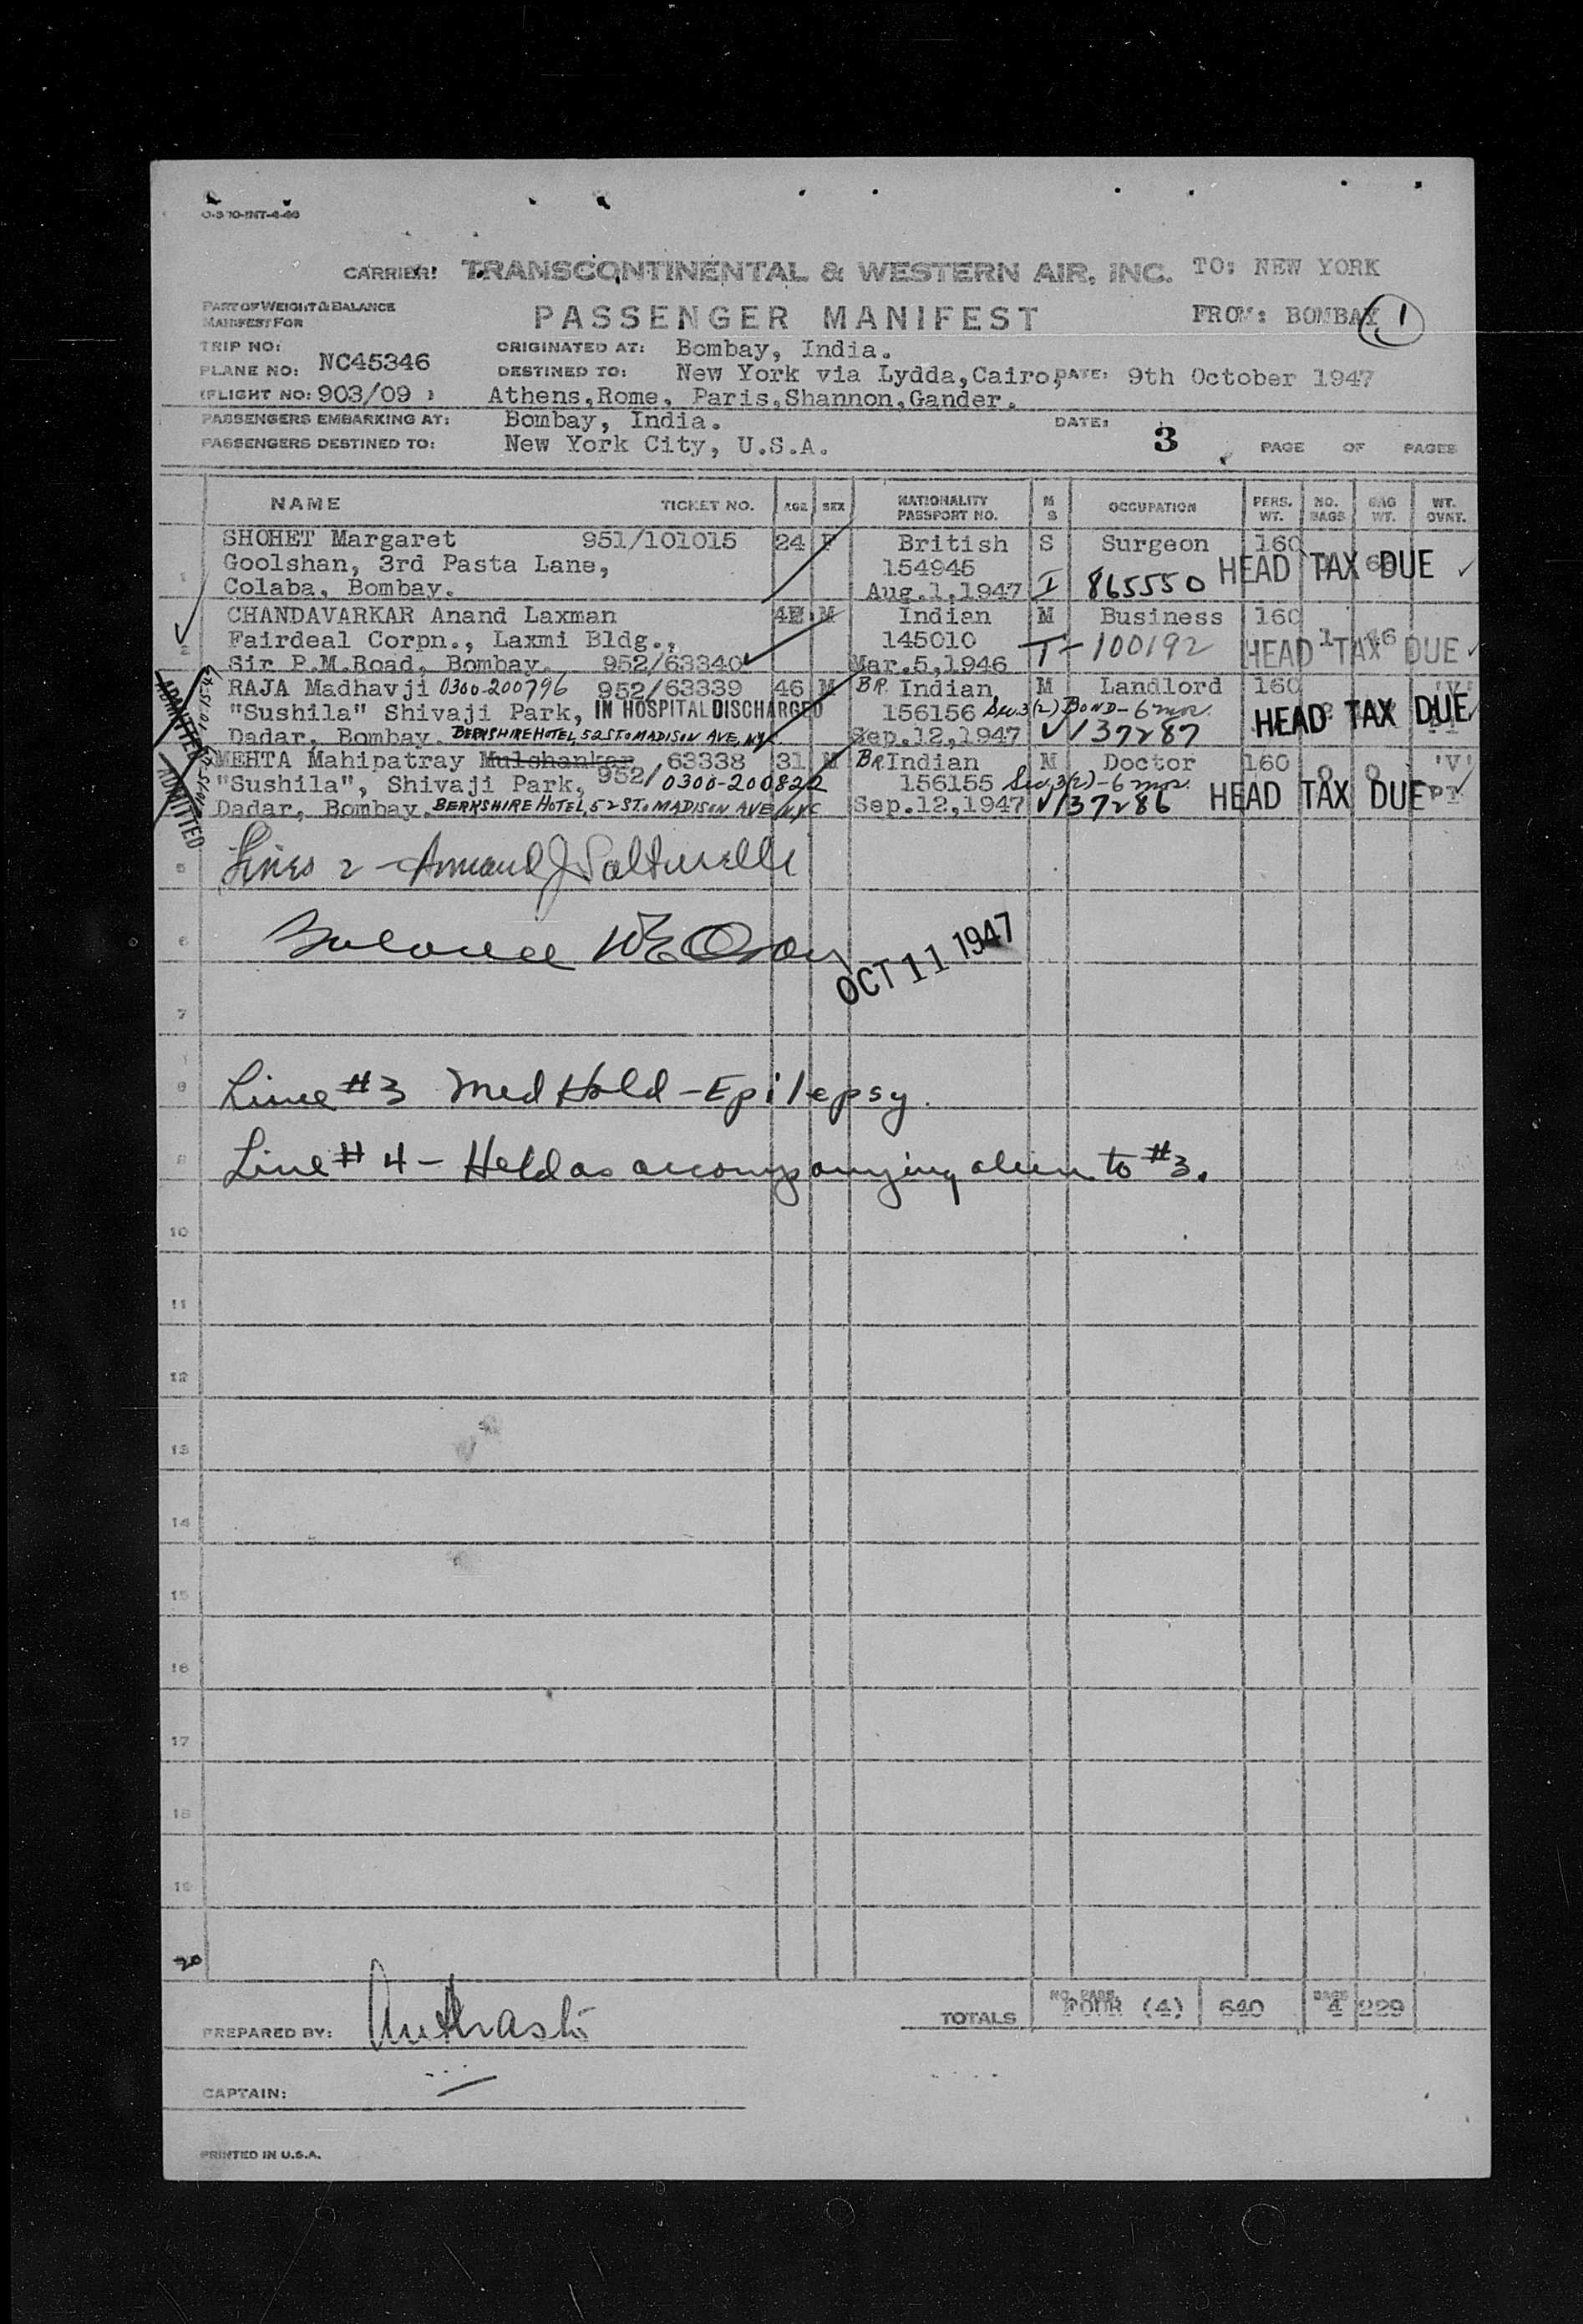 O-370-INT-4-46
CARRIER: TRANSCONTINENTAL & WESTERN AIR, INC. TO: NEW YORK
PART OF WEIGHT & BALANCE
MANIFEST FOR
PASSENGER MANIFEST FROM: BOMBAY 1
TRIP NO: ORIGINATED AT: Bombay, India.
PLANE NO: NC45346 DESTINED TO: New York via Lydda,Cairo, DATE: 9th October 1947
(FLIGHT NO: 903/09 ) Athens,Rome, Paris,Shannon,Gander.
PASSENGERS EMBARKING AT: Bombay, India. DATE:
PASSENGERS DESTINED TO: New York City, U.S.A. 3 PAGE OF PAGES
NAME TICKET NO. AGE SEX NATIONALITY PASSPORT NO. M S OCCUPATION PERS. WT. NO. BAGS BAG WT. WT. OVNT.
SHOHET Margaret 951/101015 24 F British S Surgeon 160
1 Goolshan, 3rd Pasta Lane, 154945 HEAD TAX DUE
Colaba, Bombay. Aug.1,1947 I 865550
CHANDAVARKAR Anand Laxman M Indian M Business 160
2 Fairdeal Corpn., Laxmi Bldg., 145010 T-100192 HEAD TAX DUE
Sir P.M.Road, Bombay. 952/63340 Mar.5,1946
RAJA Madhavji 0300-200796 952/63339 46 M BR Indian, M Landlord 160 'V'
"Sushila" Shivaji Park, IN HOSPITAL DISCHARGED 156156 Sec.3(2) BOND-6 mos. HEAD TAX DUE
Dadar, Bombay. BERKSHIRE HOTEL, 52 ST. MADISON AVE, NYC Sep.12,1947 V137287
MEHTA Mahipatray Mulshankar 63338 31 M BR Indian M Doctor 160 'V'
"Sushila", Shivaji Park, 952/ 0300-200822 156155 Sec.3(2)-6 mos.
Dadar, Bombay. BERKSHIRE HOTEL, 52 ST. MADISON AVE NYC Sep.12,1947 V137286 HEAD TAX DUE PT
ADMITTED
ADMITTED
5 Lines 2 - Armand J.
6 Balance
OCT 11 1947
7
8 Line #3 Med Hold - Epilepsy.
9 Line #4 - Held as accompanying alien to #3.
10
11
12
13
14
15
16
17
18
19
20
TOTALS NO. PASS. FOUR (4) 640 BAGS 4 229
PREPARED BY:
CAPTAIN:
PRINTED IN U.S.A.